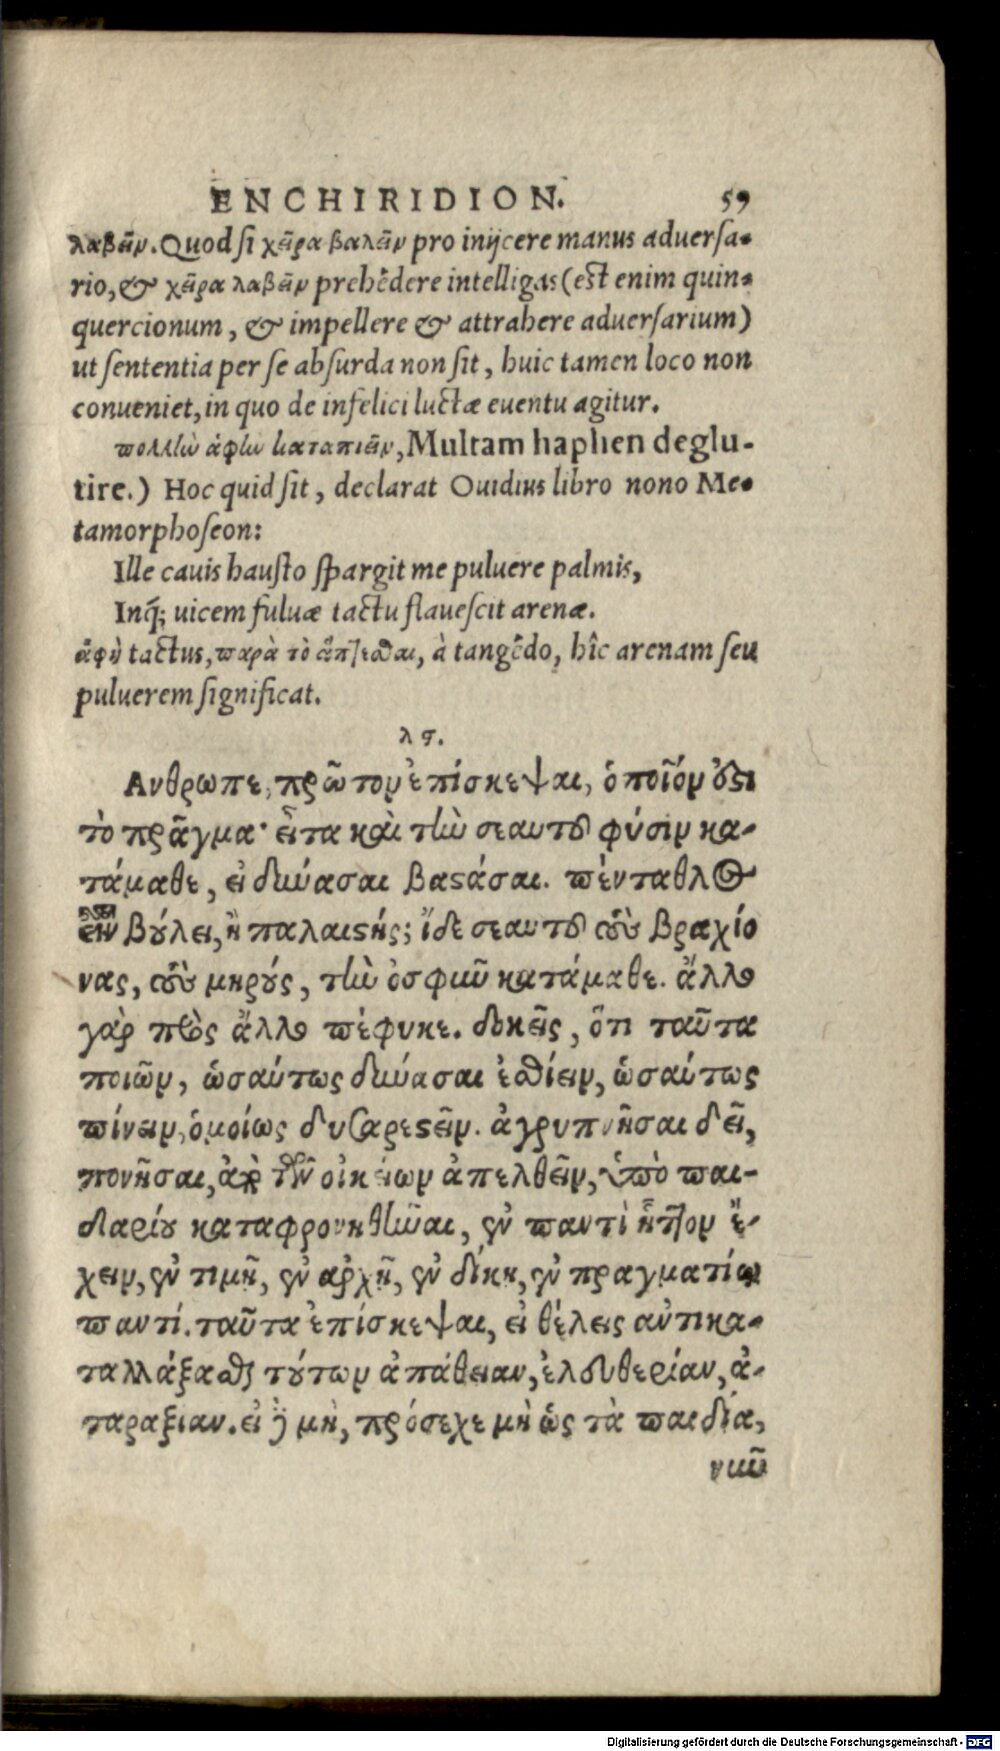 ENCHIRIDION. 59
λαβεῖν. Quod si χεῖρα βαλεῖν pro inijcere manus aduersa-
rio, & χεῖρα λαβεῖν prehēdere intelligas (est enim quin-
quercionum, & impellere & attrahere aduersarium)
ut sententia per se absurda non sit, huic tamen loco non
conueniet, in quo de infelici luctæ euentu agitur.
πολλὴν ἁφὴν καταπιεῖν, Multam haphen deglu-
tire.) Hoc quid sit, declarat Ouidius libro nono Me-
tamorphoseon:
Ille cauis hausto spargit me puluere palmis,
Inq́; uicem fuluæ tactu flauescit arenæ.
ἁφὴ tactus, παρὰ τὸ ἅπτεσθαι, à tangēdo, hîc arenam seu
puluerem significat.
λς.
Ανθρωπε, πρῶτον ἐπίσκεψαι, ὁποῖόν ὅζι
τὸ πρᾶγμα· εἶτα καὶ τὴν σεαυτοῦ φύσιν κα-
τάμαθε, εἰ δύνασαι βαστάσαι. πένταθλος
εἶν βούλει, ἢ παλαιστής; ἴδε σεαυτοῦ τοὺς βραχίο
νας, τοὺς μηρούς, τὴν ὀσφῦν κατάμαθε. ἄλλο
γὰρ πρὸς ἄλλο πέφυκε. δοκεῖς, ὅτι ταῦτα
ποιῶν, ὡσαύτως δύνασαι ἐσθίειν, ὡσαύτως
πίνειν, ὁμοίως δυσαρεστεῖν. ἀγρυπνῆσαι δεῖ,
πονῆσαι, ἀπὸ τῶν οἰκείων ἀπελθεῖν, ὑπὸ παι-
δαρίου καταφρονηθῆναι, ἐν παντὶ ἧττον ἔ-
χειν, ἐν τιμῇ, ἐν ἀρχῇ, ἐν δίκη, ἐν πραγματίῳ
παντί. ταῦτα ἐπίσκεψαι, εἰ θέλεις ἀντικα-
ταλλάξασθαι τούτων ἀπάθειαν, ἐλευθερίαν, ἀ-
ταραξιαν. εἰ δὲ μὴ, πρόσεχε μὴ ὡς τὰ παιδία,
νῦν
Digitalisierung gefördert durch die Deutsche Forschungsgemeinschaft - DFG